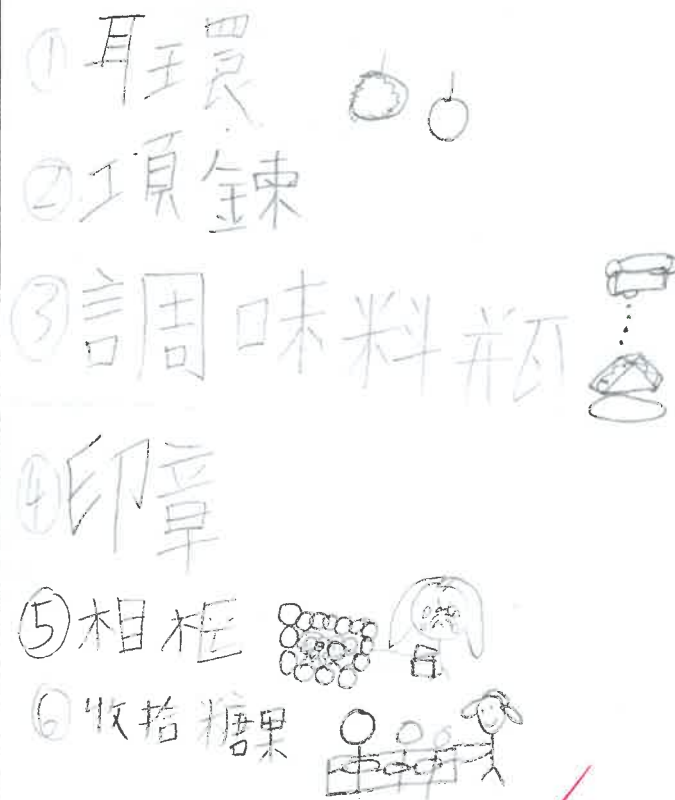 ① 耳環
② 項鍊
③ 調味料瓶
④ 印章
⑤ 相框
⑥ 收拾糖果